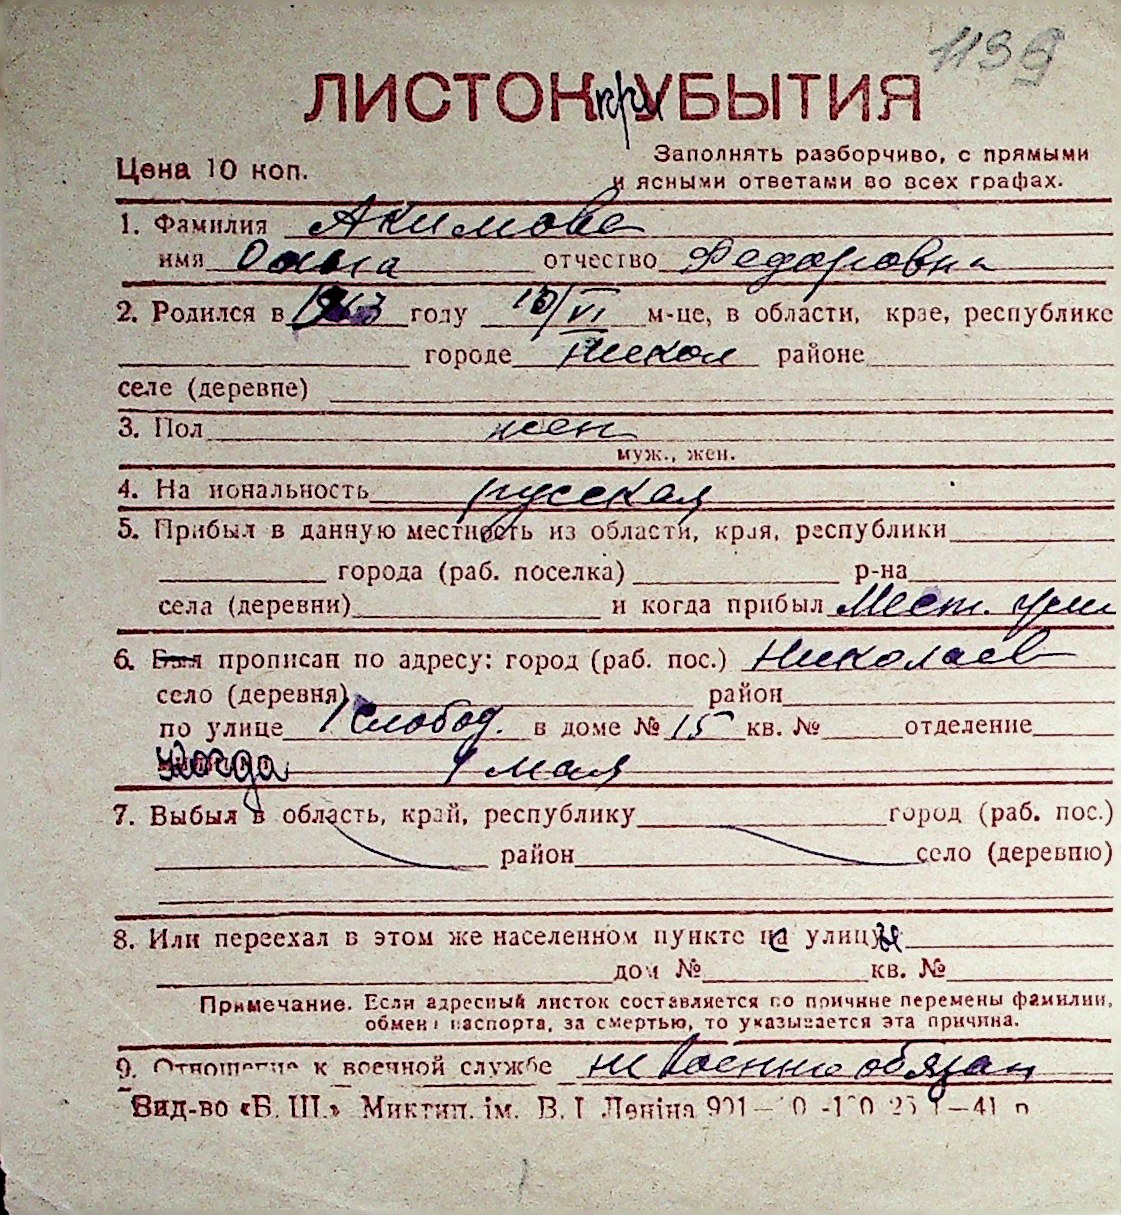 1139
ЛИСТОК при УБЫТИЯ
Цена 10 коп.
Заполнять разборчиво, с прямыми
и ясными ответами во всех графах.
1. Фамилия Акимова
имя отчество Федоровна
2. Родился в году 10/VI м-це, в области, крае, республике
городе Никол районе
селе (деревне)
3. Пол жен
муж., жен.
4. На иональность русская
5. Прибыл в данную местность из области, края, республики
города (раб. поселка) р-на
села (деревни) и когда прибыл Мест.
6. Был прописан по адресу: город (раб. пос.) Николаев
село (деревня) район
по улице 1 Слобод. в доме № 15 кв. № отделение
Когда 9 мая
7. Выбыл в область, край, республику город (раб. пос.)
район село (деревню)
8. Или переехал в этом же населенном пункте с улицы
дом № кв. №
Примечание. Если адресный листок составляется по причине перемены фамилии,
обмена паспорта, за смертью, то указывается эта причина.
9. Отношение к военной службе не военнообязан
Вид-во «Б. Ш.» Миктип. ім. В. І Леніна